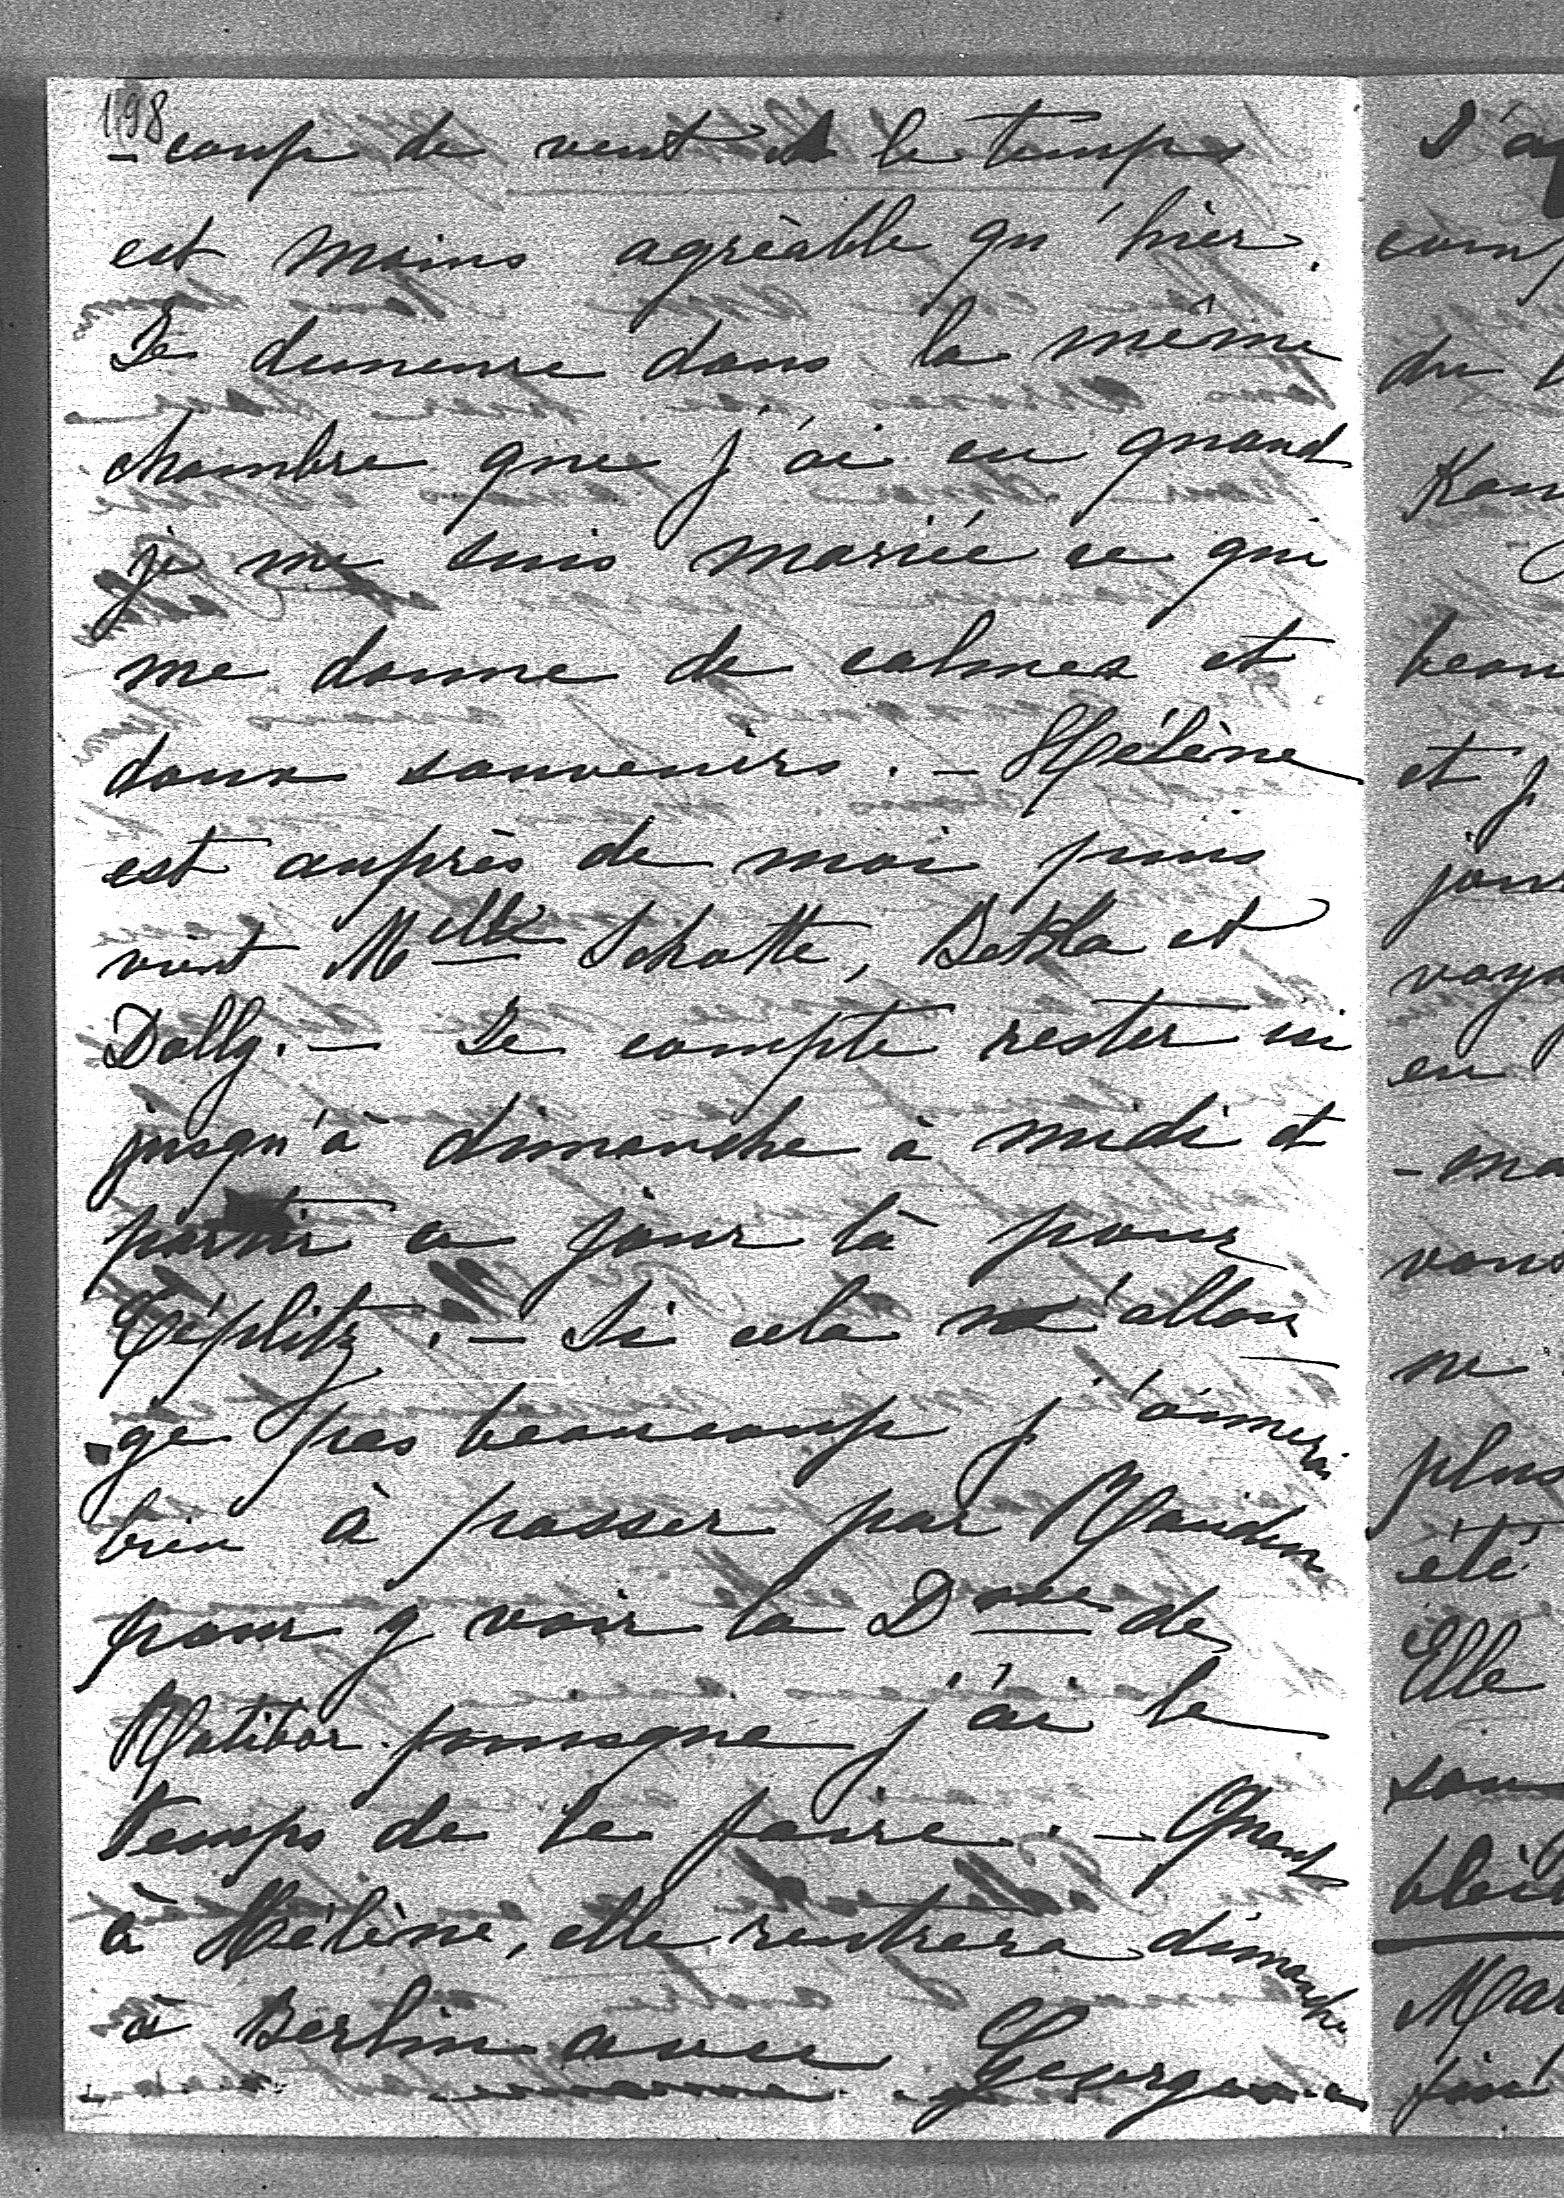 198
-coup de vent et le temps
est moins agréable qu'hier.
Je demeure dans la même
chambre que j'ai eu quand
je me suis mariée ce qui
me donne de calmes et
doux souvenirs. - Hélène
est auprès de moi puis
vient Melle Schotte, et
Dolly. - Je compte rester ici
jusqu'à dimanche à midi et
partir ce jour là pour
Téplitz. - Si cela m'allon
-ge pas beaucoup j'aimerai
bien à passer par Rauden
pour y voir la Dsse de
Ratibor puisque j'ai le
temps de le faire. - Quant
à Hélène, elle rentrera dimanche
à Berlin avec Georges
J'a
comp
du
Kam
beau
et j
jour
voya
en
-ma
vous
ne
plus
été
Elle
son
Ma